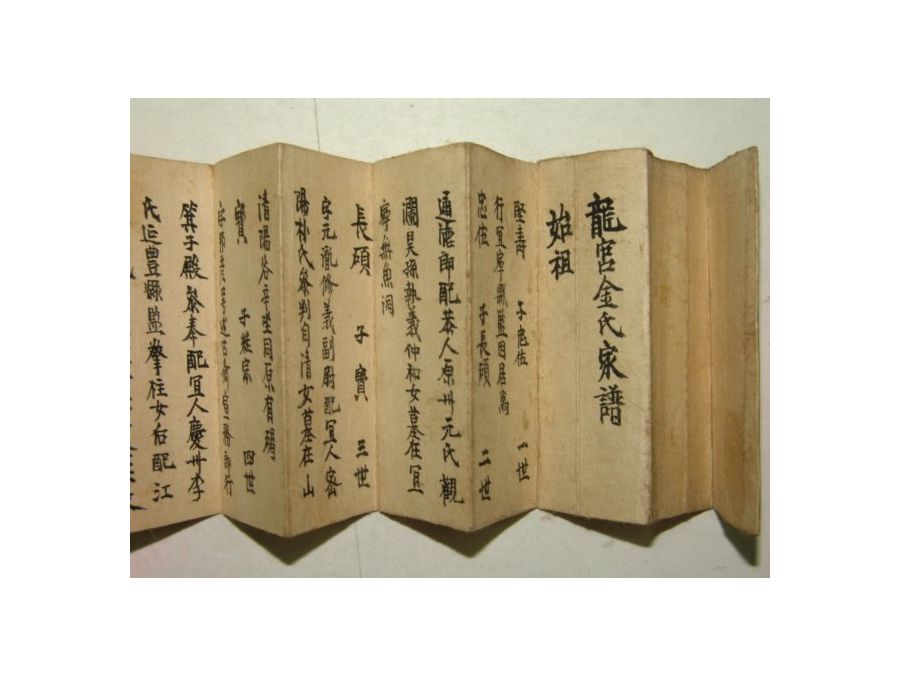 龍宮金氏家譜
始祖
堅壽 子忠佐 一世
行宜寧縣監因居焉
忠佐 子長碩 二世
通德郎配恭人原州元氏觀
瀾昊孫執義仲和女墓在宜
寧無魚洞
長碩 子寶 三世
字元 修義副尉配宜人密
陽朴氏參判自清女墓在山
清陽谷辛坐同原有碣
寶 子 宗 四世
箕子殿參奉配宜人慶州李
氏延豊縣監擎柱女后配江